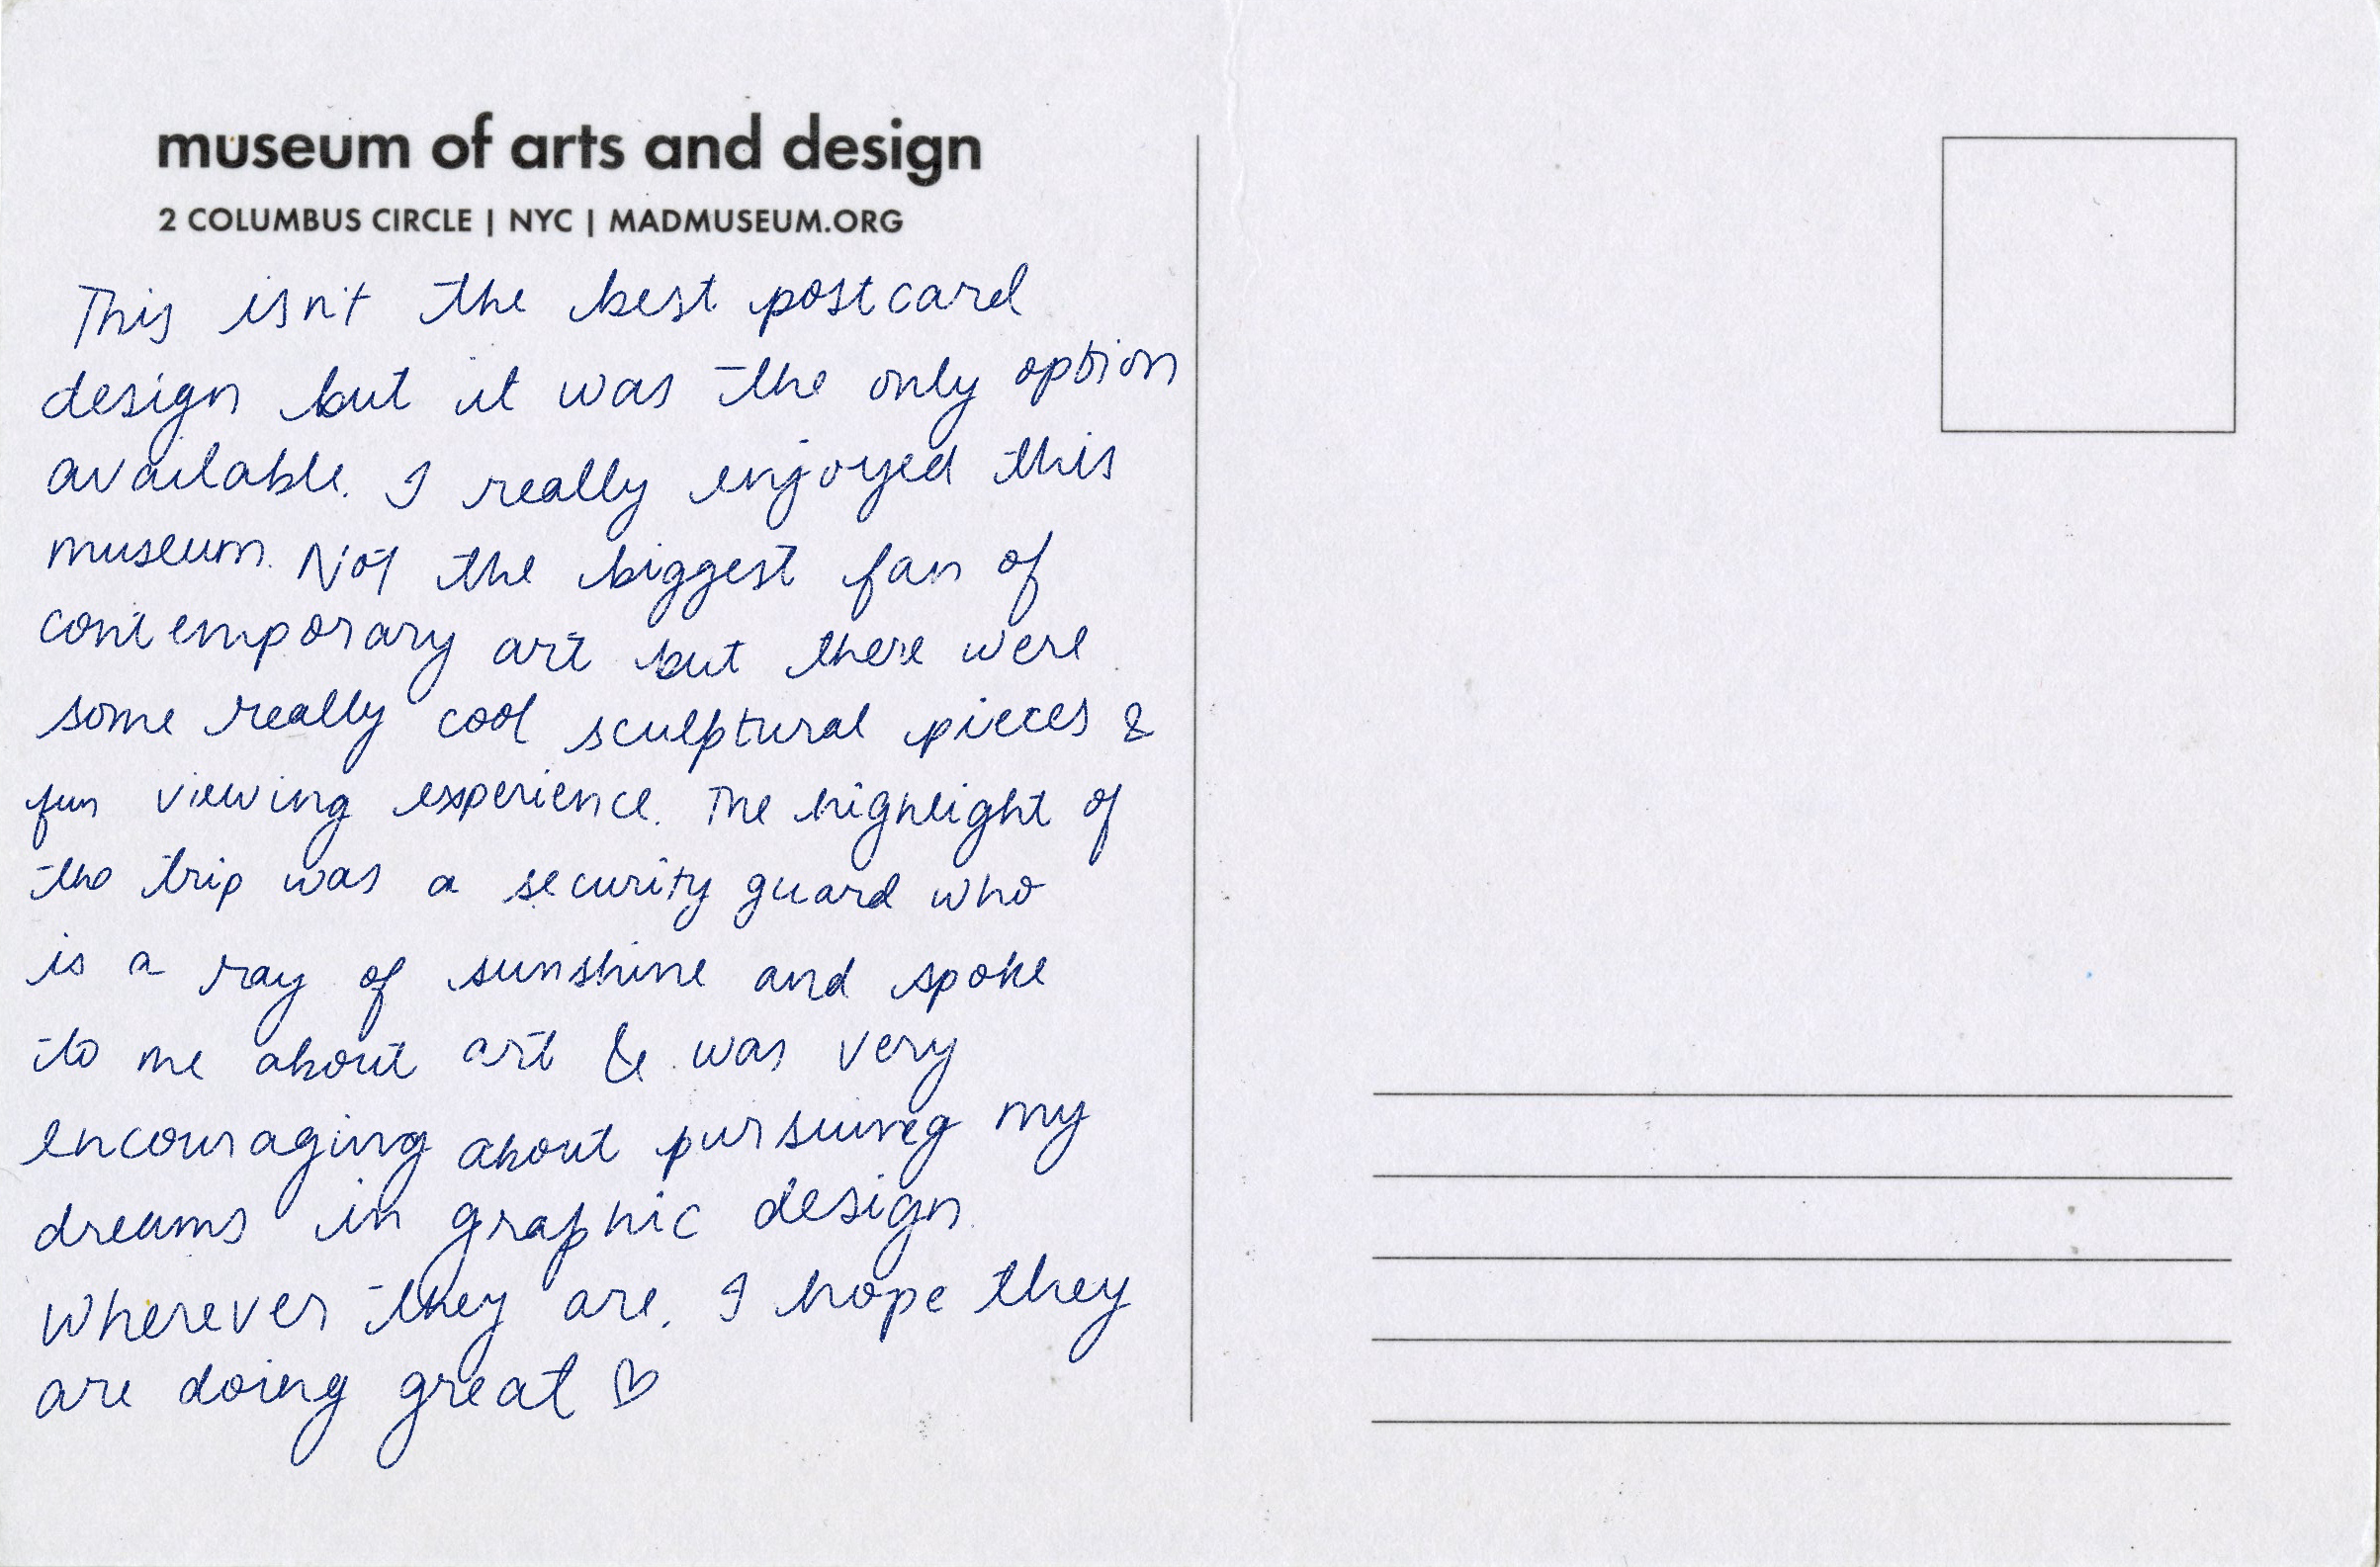 museum of arts and design
2 COLUMBUS CIRCLE | NYC | MADMUSEUM.ORG
This isn't the best postcard
design but it was the only option
available. I really enjoyed this
museum. Not the biggest fan of
contemporary art but there were
some really cool sculptural pieces &
fun viewing experience. The highlight of
the trip was a security guard who
is a ray of sunshine and spoke
to me about art & was very
encouraging about pursuing my
dreams in graphic design.
Wherever they are, I hope they
are doing great ♡